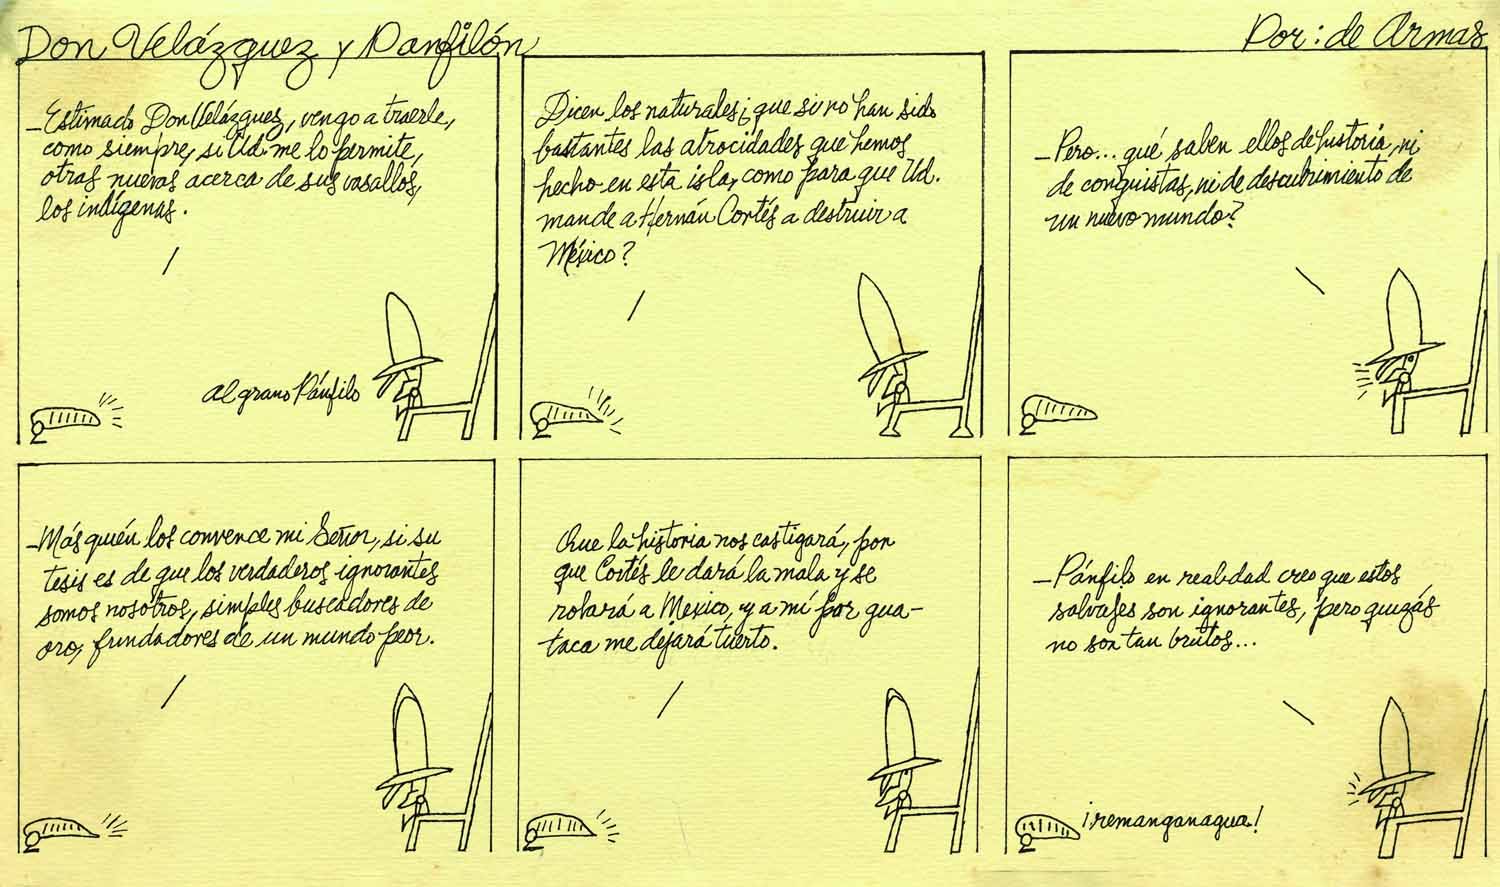 Don Velázquez y Panfilón
Por: de Armas
_Estimado Don Velázquez, vengo a traerle,
como siempre, si Ud. me lo permite,
otras nuevas acerca de sus vasallos,
los indígenas.
Al grano Pánfilo
Dicen los naturales ¿que si no han sido
bastantes las atrocidades que hemos
hecho en esta isla, como para que Ud.
mande a Hernán Cortés a destruir a
México?
_Pero... qué saben ellos de historia, ni
de conquistas, ni de descubrimiento de
un nuevo mundo?
_Más quién los convence mi Señor, si su
tesis es de que los verdaderos ignorantes
somos nosotros, simples buscadores de
oro, fundadores de un mundo peor.
Que la historia nos castigará, por
que Cortés le dará la mala y se
robará a Mexico, y a mí por gua-
taca me dejará tuerto.
_Pánfilo en realidad creo que estos
salvajes son ignorantes, pero quizás
no son tan brutos...
¡remanganagua!